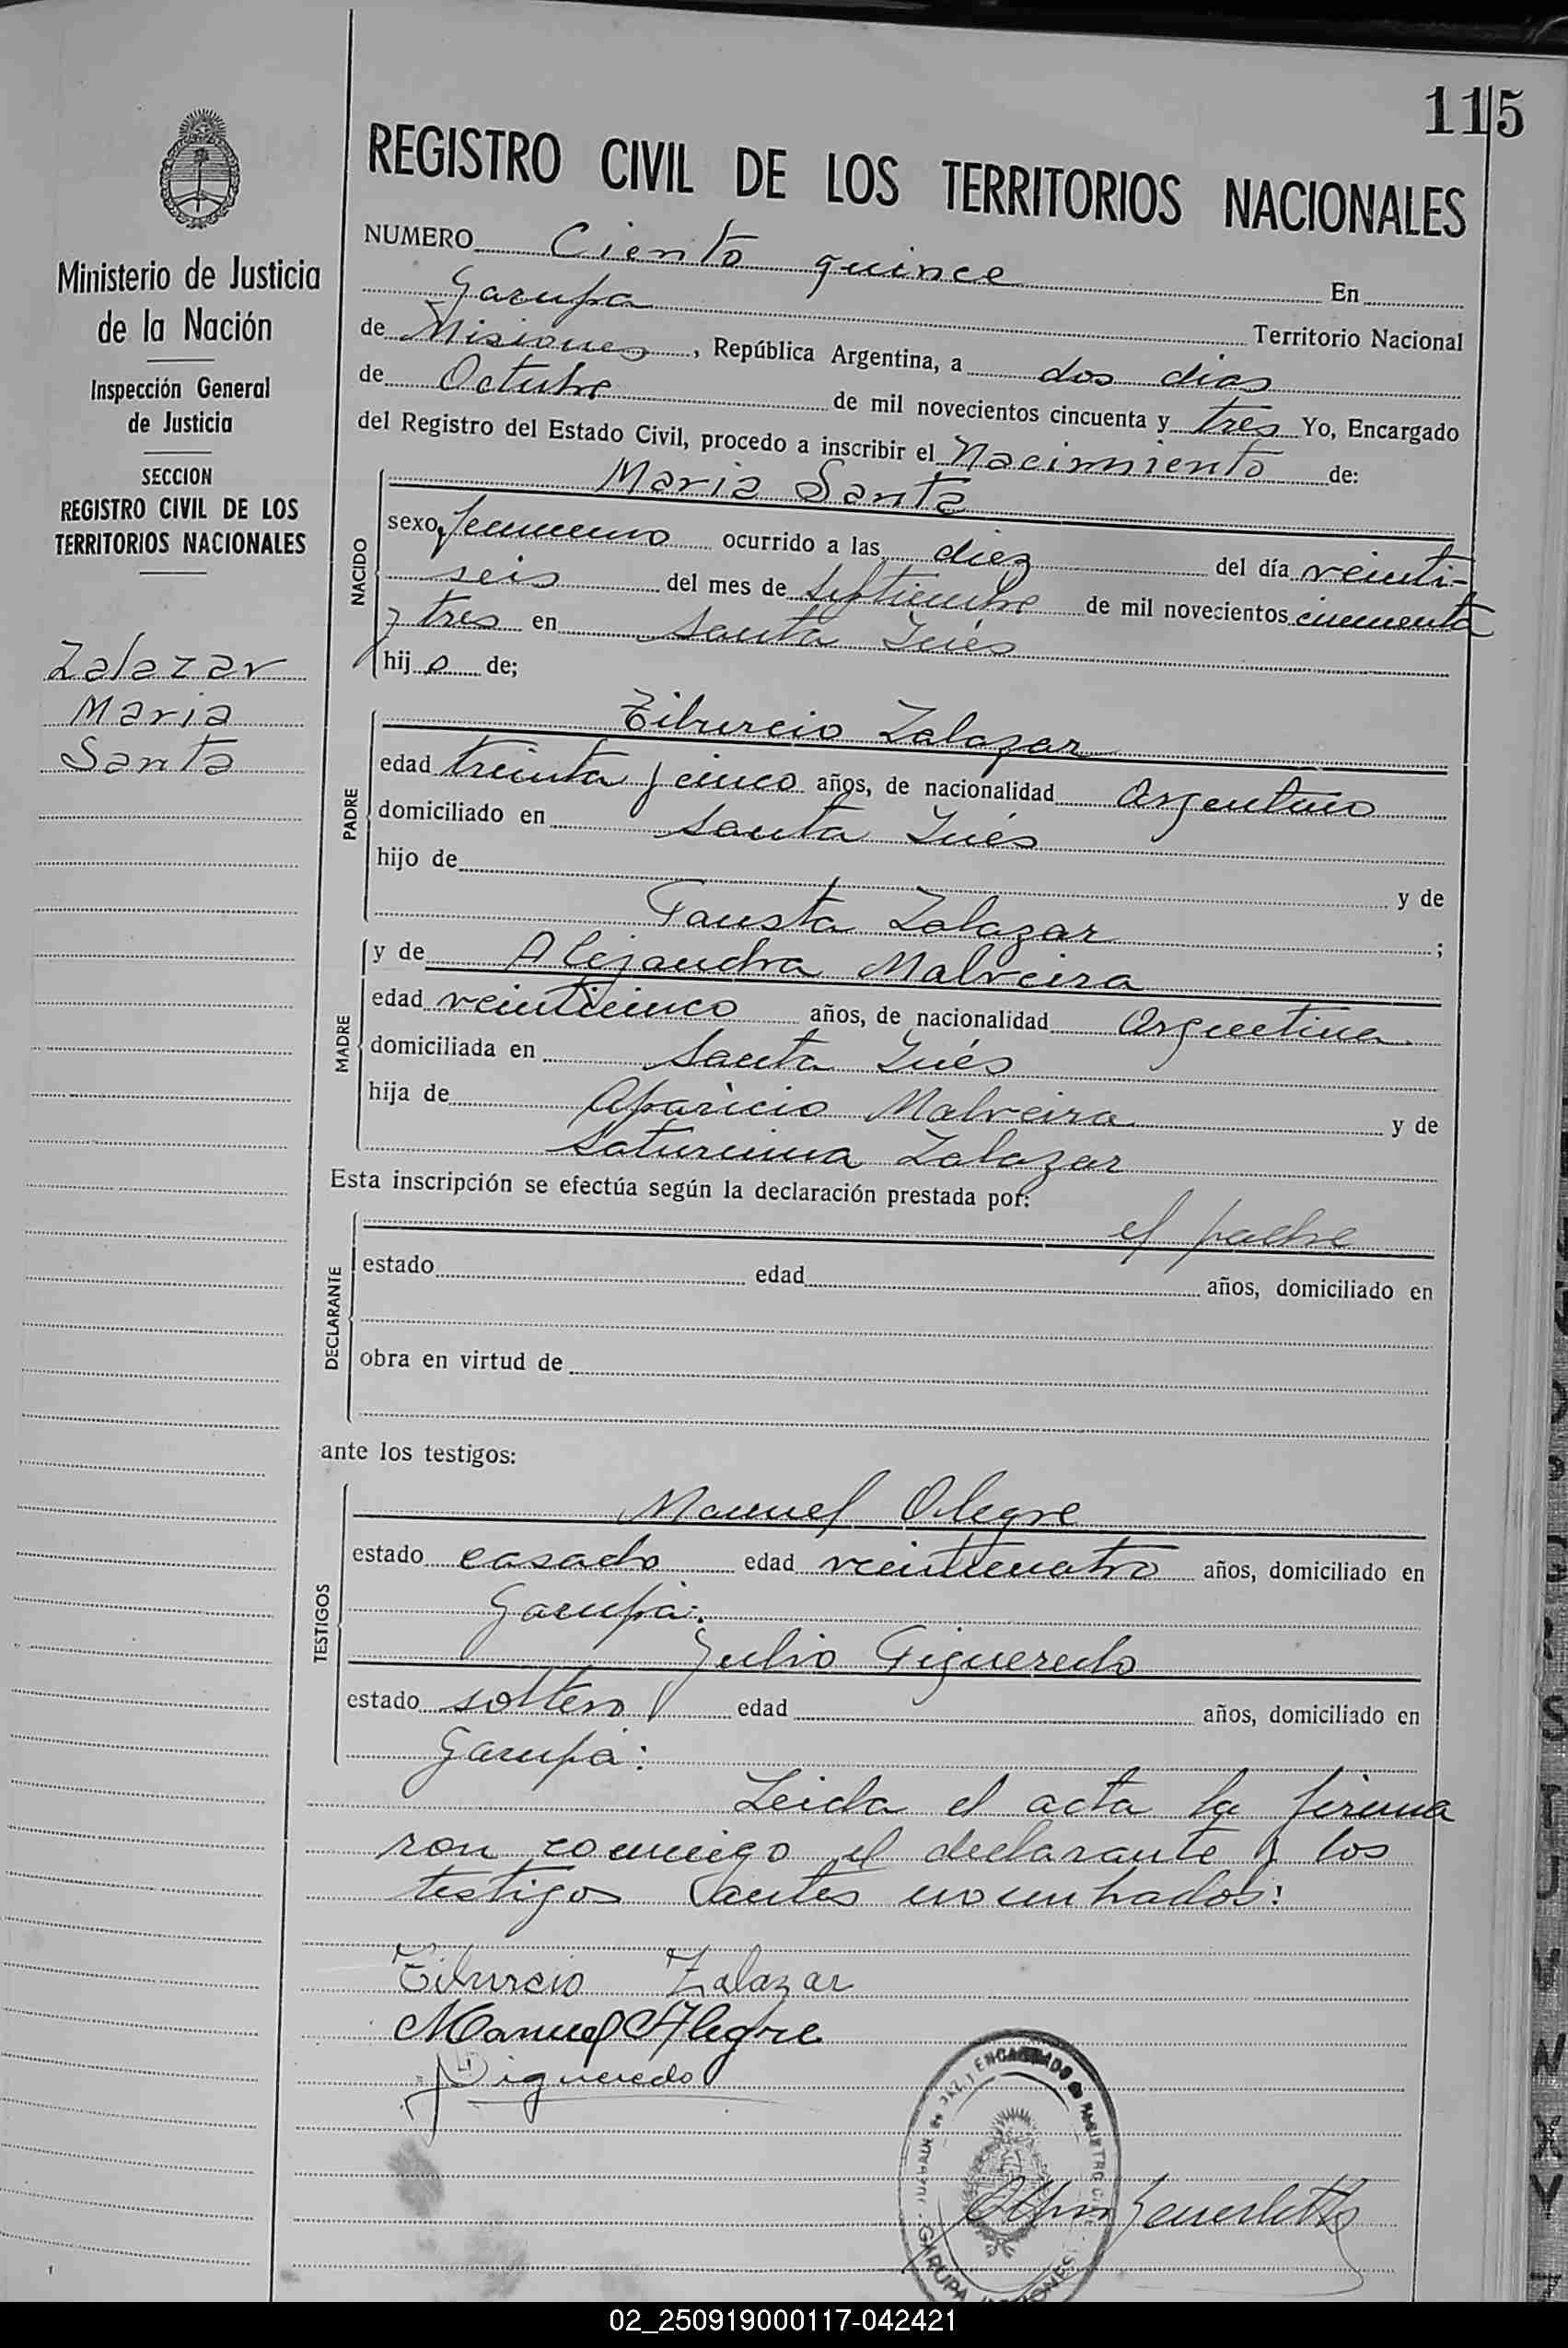 115
REGISTRO CIVIL DE LOS TERRITORIOS NACIONALES
Ministerio de Justicia
de la Nación
Inspección General
de Justicia
SECCION
REGISTRO CIVIL DE LOS
TERRITORIOS NACIONALES
Zalazar
Maria
Santa
NUMERO Ciento quince En
Garupa Territorio Nacional
de Misiones, República Argentina, a dos dias
de Octubre de mil novecientos cincuenta y tres Yo, Encargado
del Registro del Estado Civil, procedo a inscribir el Nacimiento de:
Maria Santa
NACIDO
sexo femenino ocurrido a las diez del día veinti-
seis del mes de Septiembre de mil novecientos cincuenta
y tres en Santa Inés
hija de;
Tiburcio Zalazar
PADRE
edad treinta y cinco años, de nacionalidad Argentino
domiciliado en Santa Inés
hijo de y de
Fausta Zalazar ;
y de Alejandra Malveira
MADRE
edad veinticinco años, de nacionalidad Argentina
domiciliada en Santa Inés
hija de Aparicio Malveira y de
Saturnina Zalazar
Esta inscripción se efectúa según la declaración prestada por:
el padre
DECLARANTE
estado edad años, domiciliado en
obra en virtud de
ante los testigos:
Manuel Alegre
TESTIGOS
estado casado edad veinticuatro años, domiciliado en
Garupá:.
Julio Figueredo
estado soltero edad años, domiciliado en
Garupá:
Leida el acta la firma
ron conmigo el declarante y los
testigos antes nombrados:
Tiburcio Zalazar
Manuel Alegre
Figueredo
ENCARGADO REGISTRO
GARUPA
02_250919000117-042421